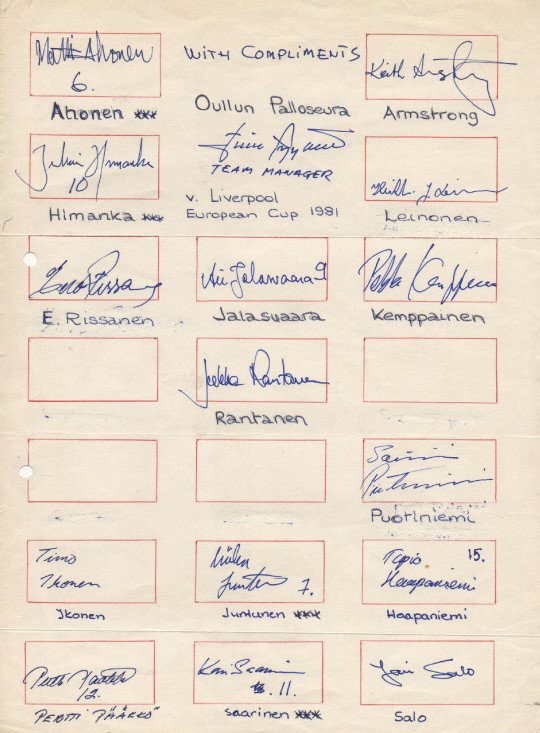 Matti Ahonen
6.
Ahonen ***
WITH COMPLIMENTS
Oullun Palloseura
Keith Armstrong
Armstrong
Juhani Himanka
10
Himanka ***
TEAM MANAGER
v. Liverpool
European Cup 1981
Heikki J. Leinonen
Leinonen
Eero Rissanen
E. Rissanen
Ari Jalasvaara 9
Jalasvaara
Pekka Kemppainen
Kemppainen
Jukka Rantanen
Rantanen
Puotiniemi
Timo
Ikonen
Ikonen
Juntunen 7.
Juntunen ***
Tapio 15.
Haapaniemi
Haapaniemi
12.
PERTTI PÄÄKKÖ
Kari Saarinen
11.
Saarinen ***
Jari Salo
Salo